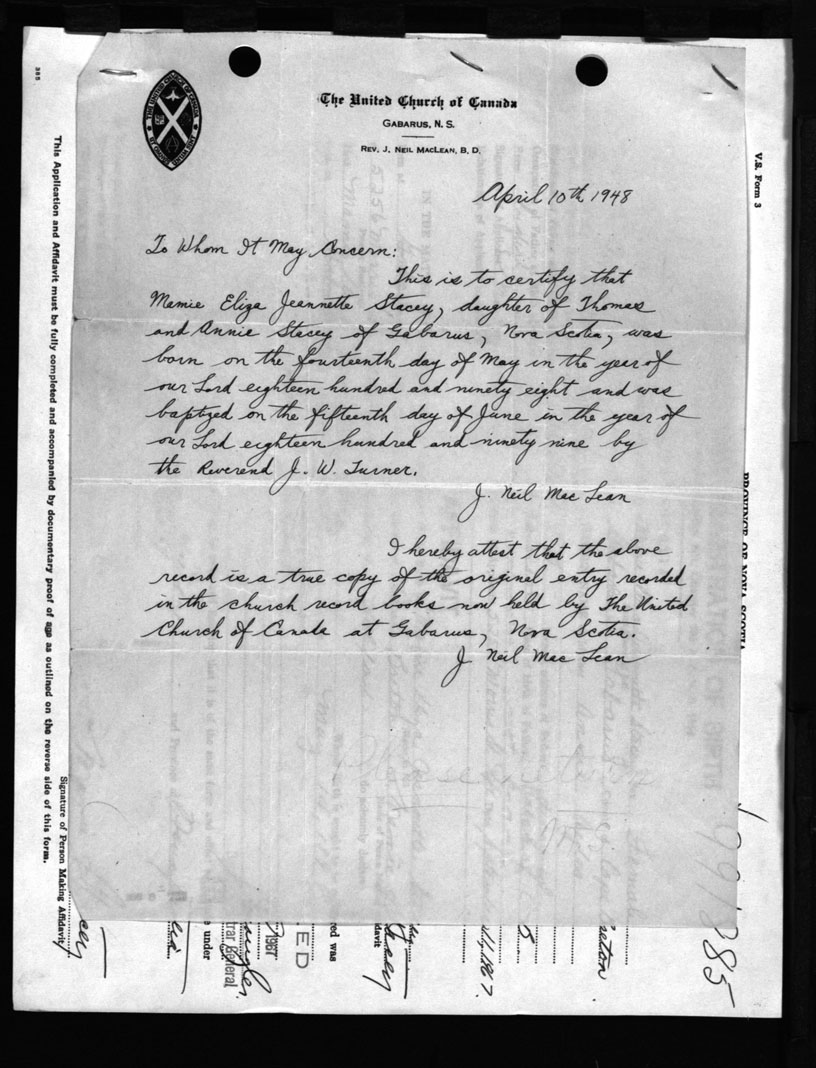 The United Church of Canada
GABARUS, N. S.
REV. J. NEIL MACLEAN, B. D.
April 10th, 1948
To Whom It May Concern:
This is to certify that
Mamie Eliza Jeannette Stacey, daughter of Thomas
and Annie Stacey of Gabarus, Nova Scotia, was
born on the fourteenth day of May in the year of
our Lord eighteen hundred and ninety eight and was
baptized on the fifteenth day of June in the year of
our Lord eighteen hundred and ninety nine by
the Reverend J. W. Turner.
J. Neil MacLean
I hereby attest that the above
record is a true copy of the original entry recorded
in the church record books now held by The United
Church of Canada at Gabarus, Nova Scotia.
J Neil MacLean
385
This Application and Affidavit must be fully completed and accompanied by documentary proof of age as outlined on the reverse side of this form.
Signature of Person Making Affidavit
V.S. Form 3
PROVINCE OF NOVA SCOTIA
e under
trar General
1967
ED
red was
davit